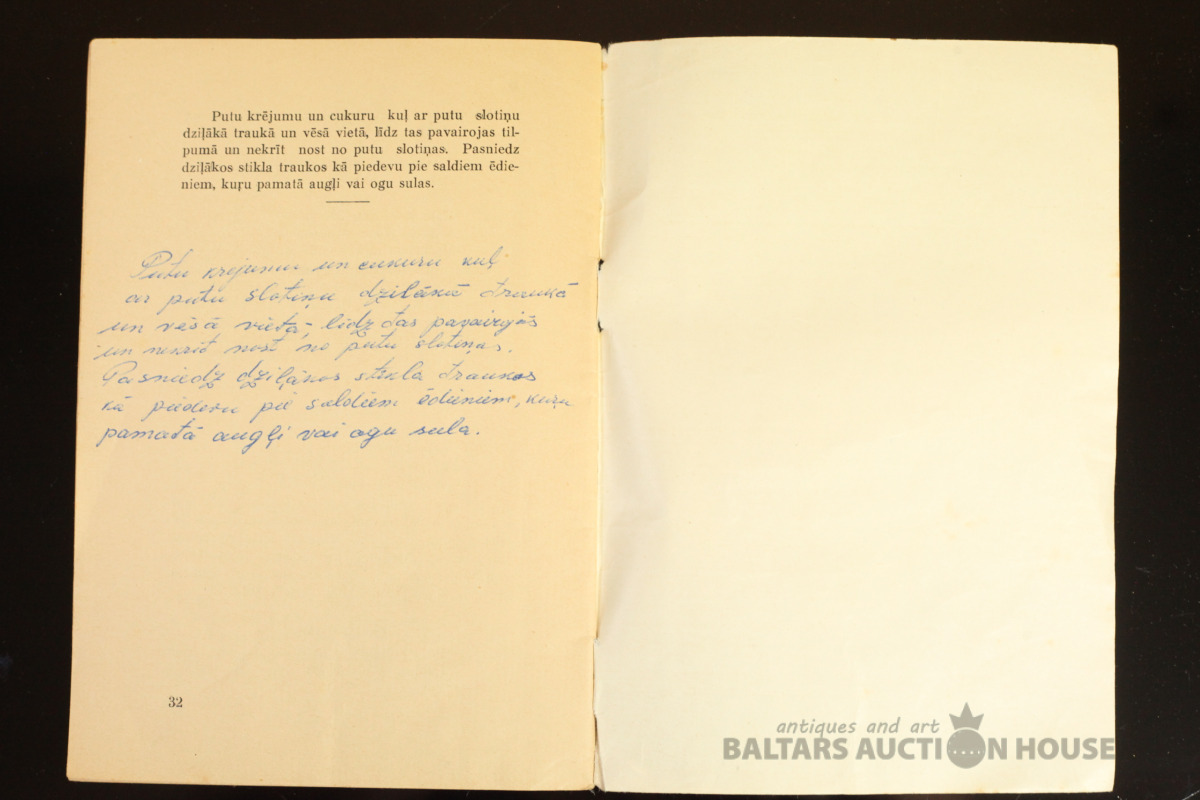 Putu krējumu un cukuru kuļ ar putu slotiņu
dziļākā traukā un vēsā vietā, līdz tas pavairojas til-
pumā un nekrīt nost no putu slotiņas. Pasniedz
dziļākos stikla traukos kā piedevu pie saldiem ēdie-
niem, kuŗu pamatā augļi vai ogu sulas.
Putu krējumu un cukuru kuļ
ar putu slotiņu dziļākā traukā
un vēsā vietā, līdz tas pavairojās
un nekrīt nost no putu slotiņas.
Pasniedz dziļākos stikla traukos
kā piedevu pie saldiem ēdieniem, kuŗu
pamatā augļi vai ogu sula.
32
antiques and art
BALTARS AUCTION HOUSE